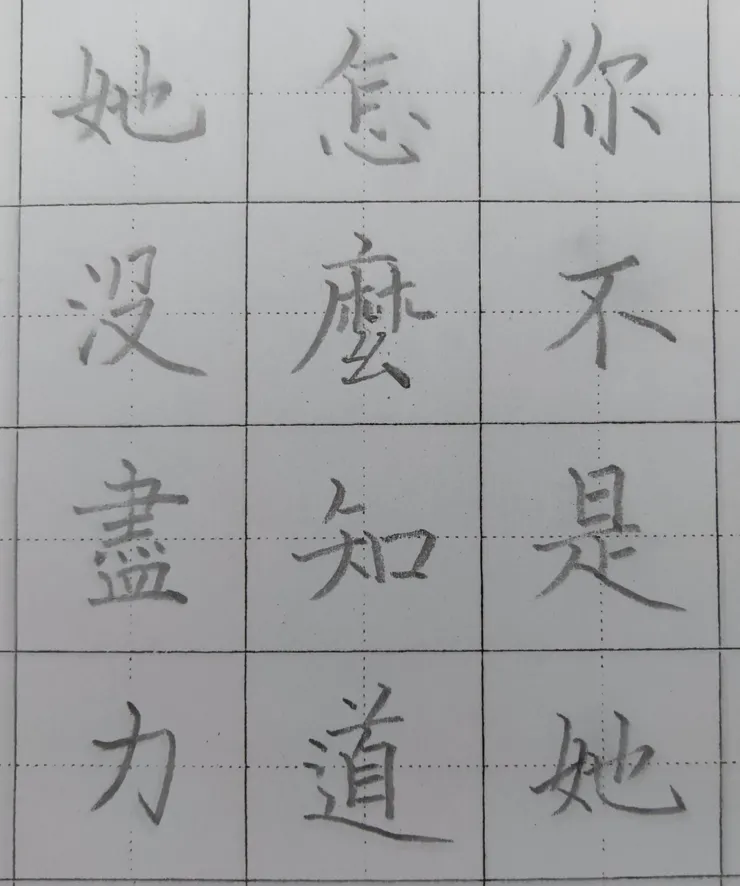 你不是她
怎麼知道
她沒盡力